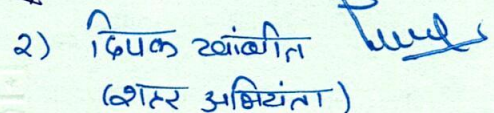 २) दिपक खांबीत
(शहर अभियंता)